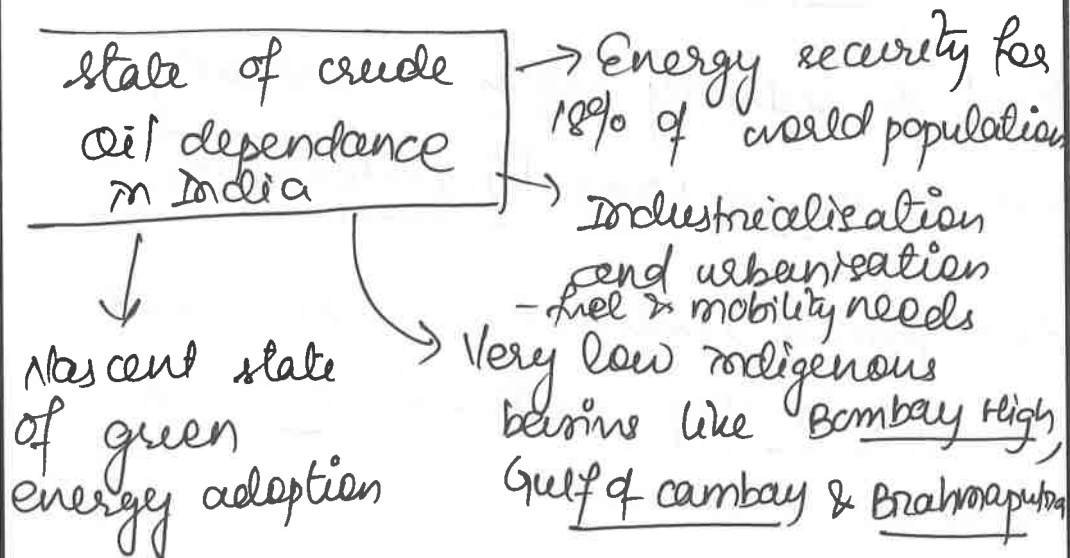 State of crude
Oil dependance
in India
→ Energy security for
18% of world population
→ Industrialisation
and urbanisation
- fuel & mobility needs
Very low indigenous
basins like Bombay High,
Gulf of Cambay & Brahmaputra
Nascent state
of green
energy adoption